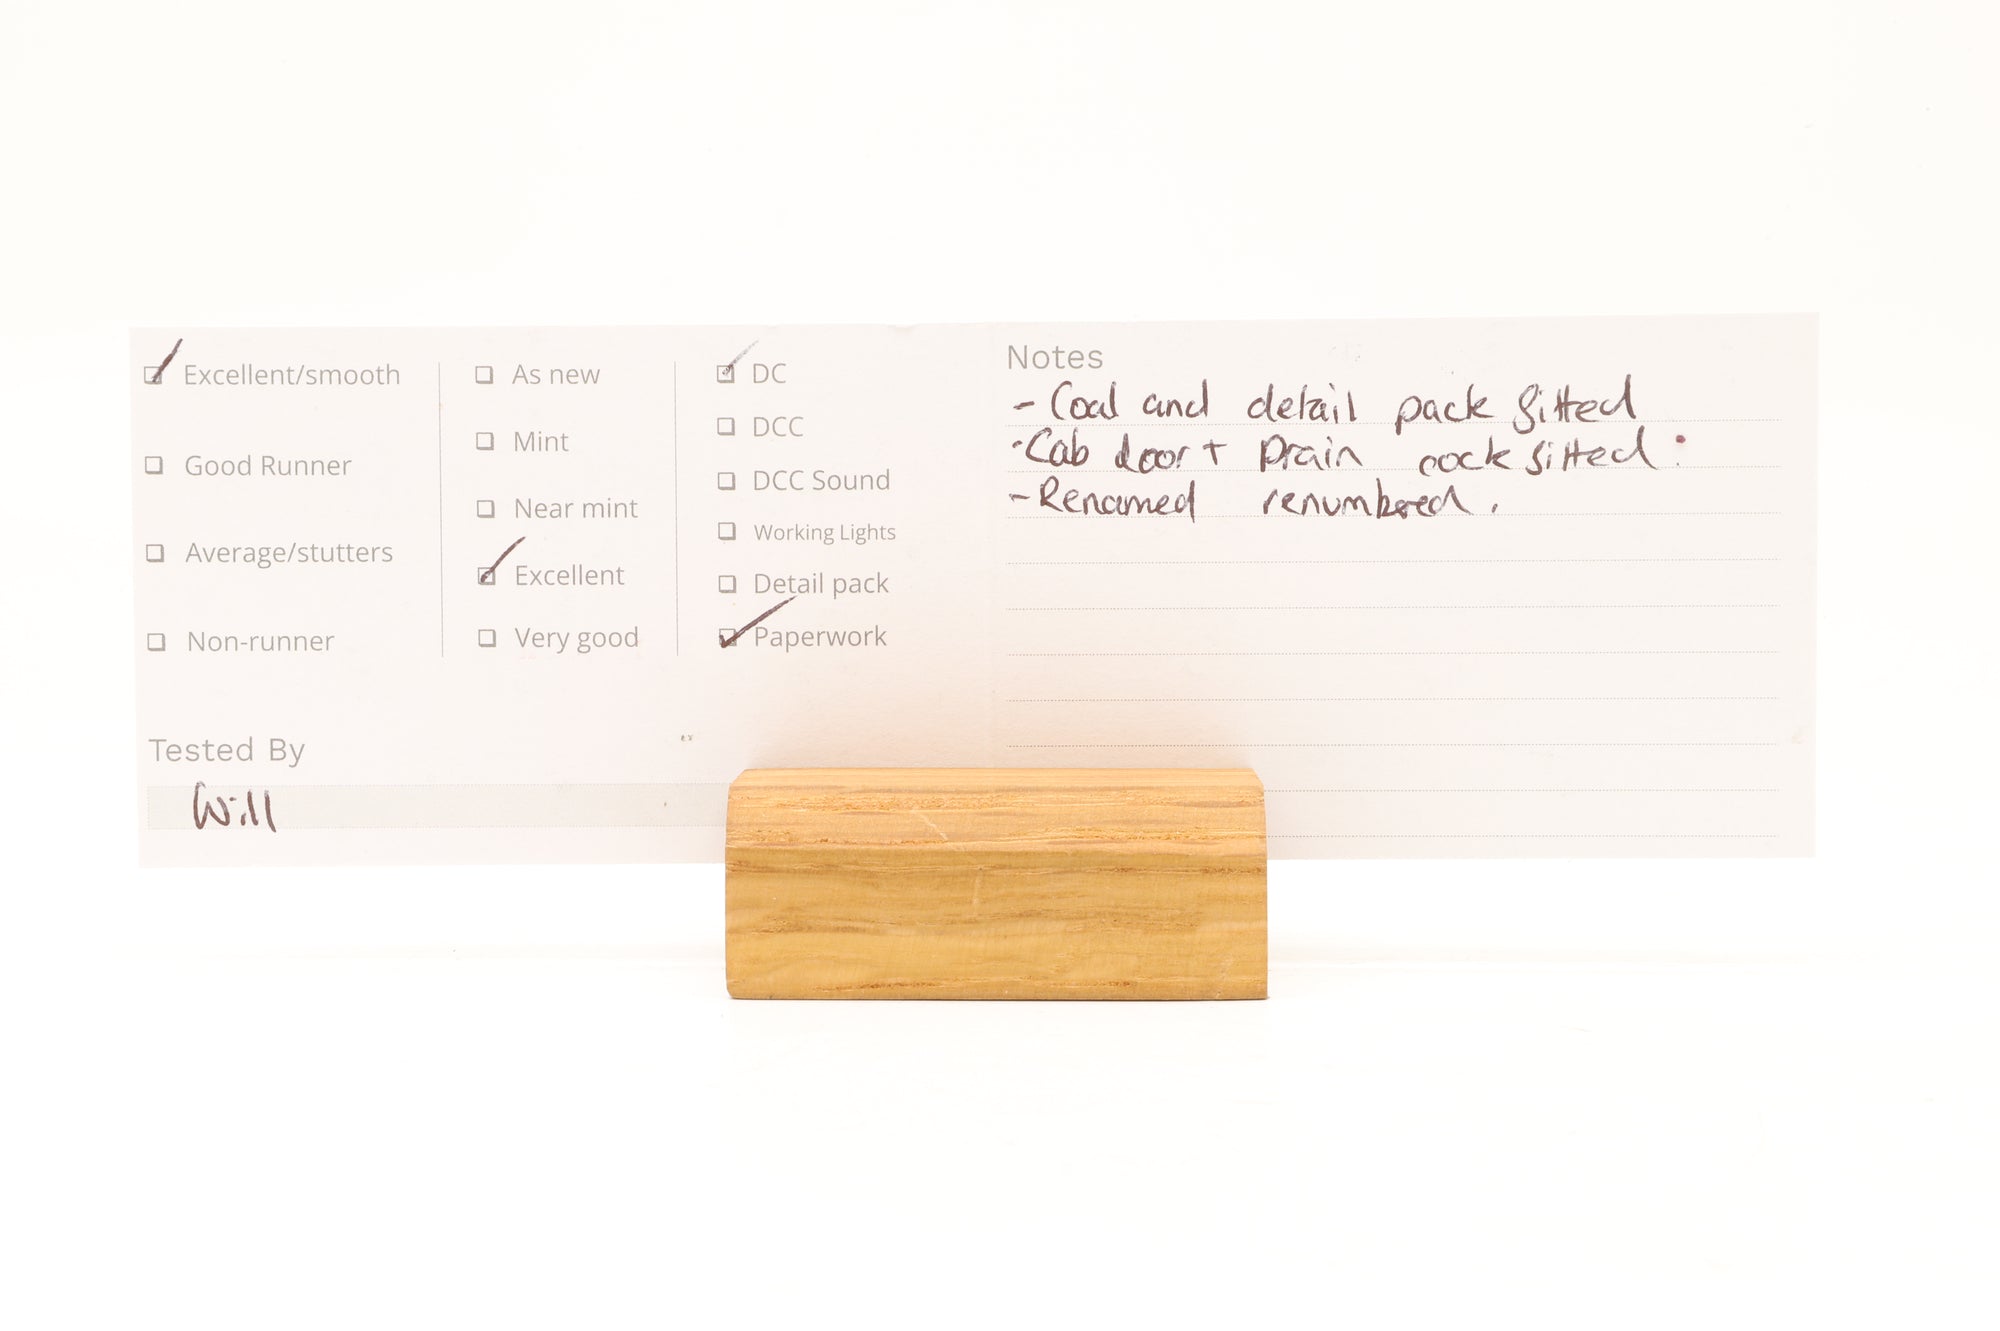 Excellent/smooth
Good Runner
Average/stutters
Non-runner
As new
Mint
Near mint
Excellent
Very good
DC
DCC
DCC Sound
Working Lights
Detail pack
Paperwork
Tested By
Will
Notes
- Coal and detail pack fitted
- Cab door + Drain cock fitted.
- Renamed renumbered.